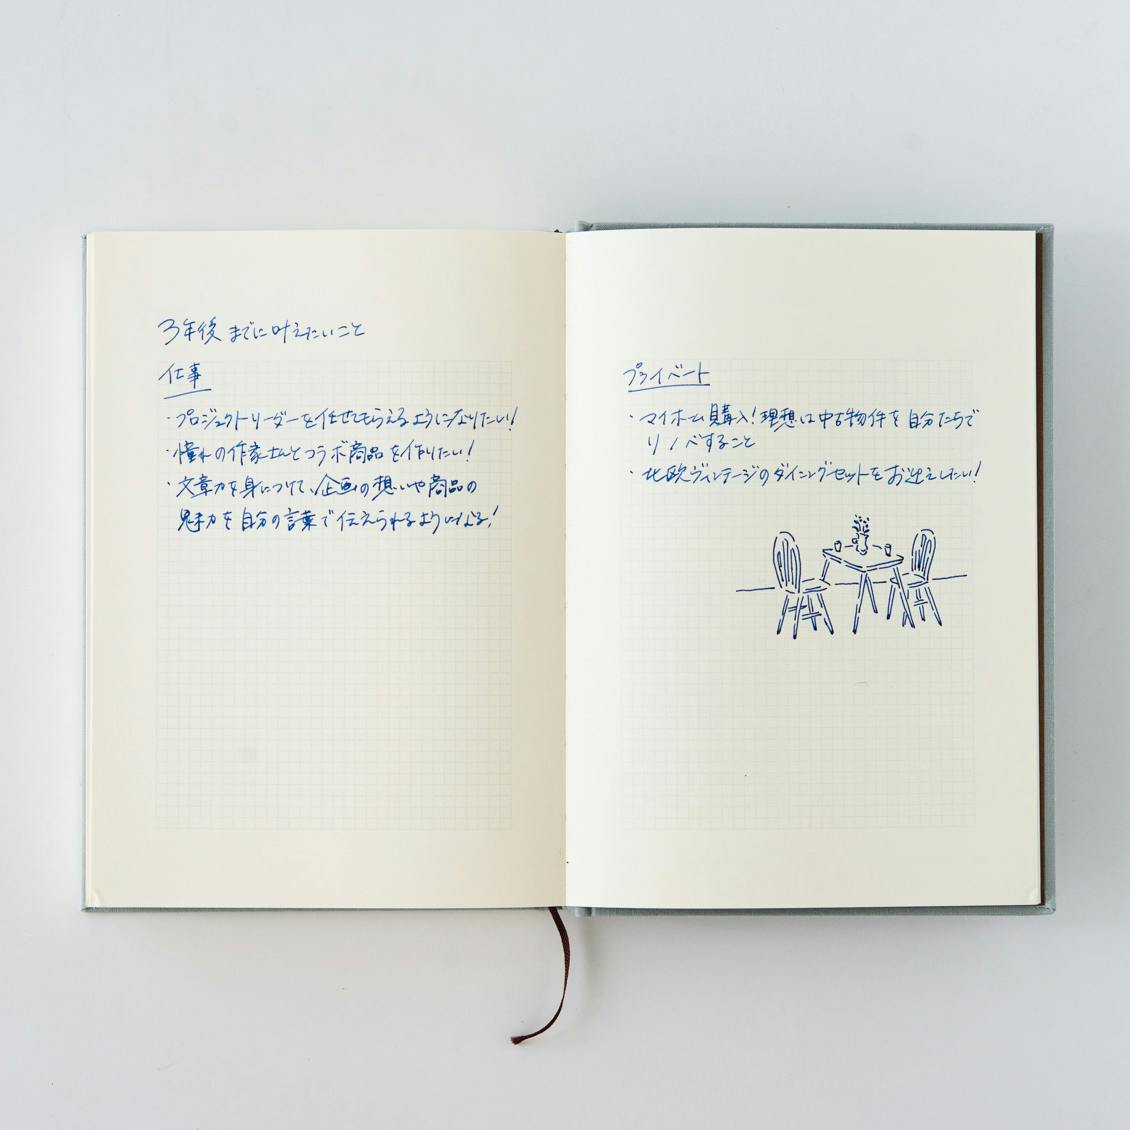 3年後までに叶えたいこと
仕事
・プロジェクトリーダーを任せてもらえるようになりたい!
・憧れの作家さんとコラボ商品を作りたい!
・文章力を身につけて、企画の想いや商品の
魅力を自分の言葉で伝えられるようになる!
プライベート
・マイホーム購入!理想は中古物件を自分たちで
リノベすること
・北欧ヴィンテージのダイニングセットをお迎えしたい!